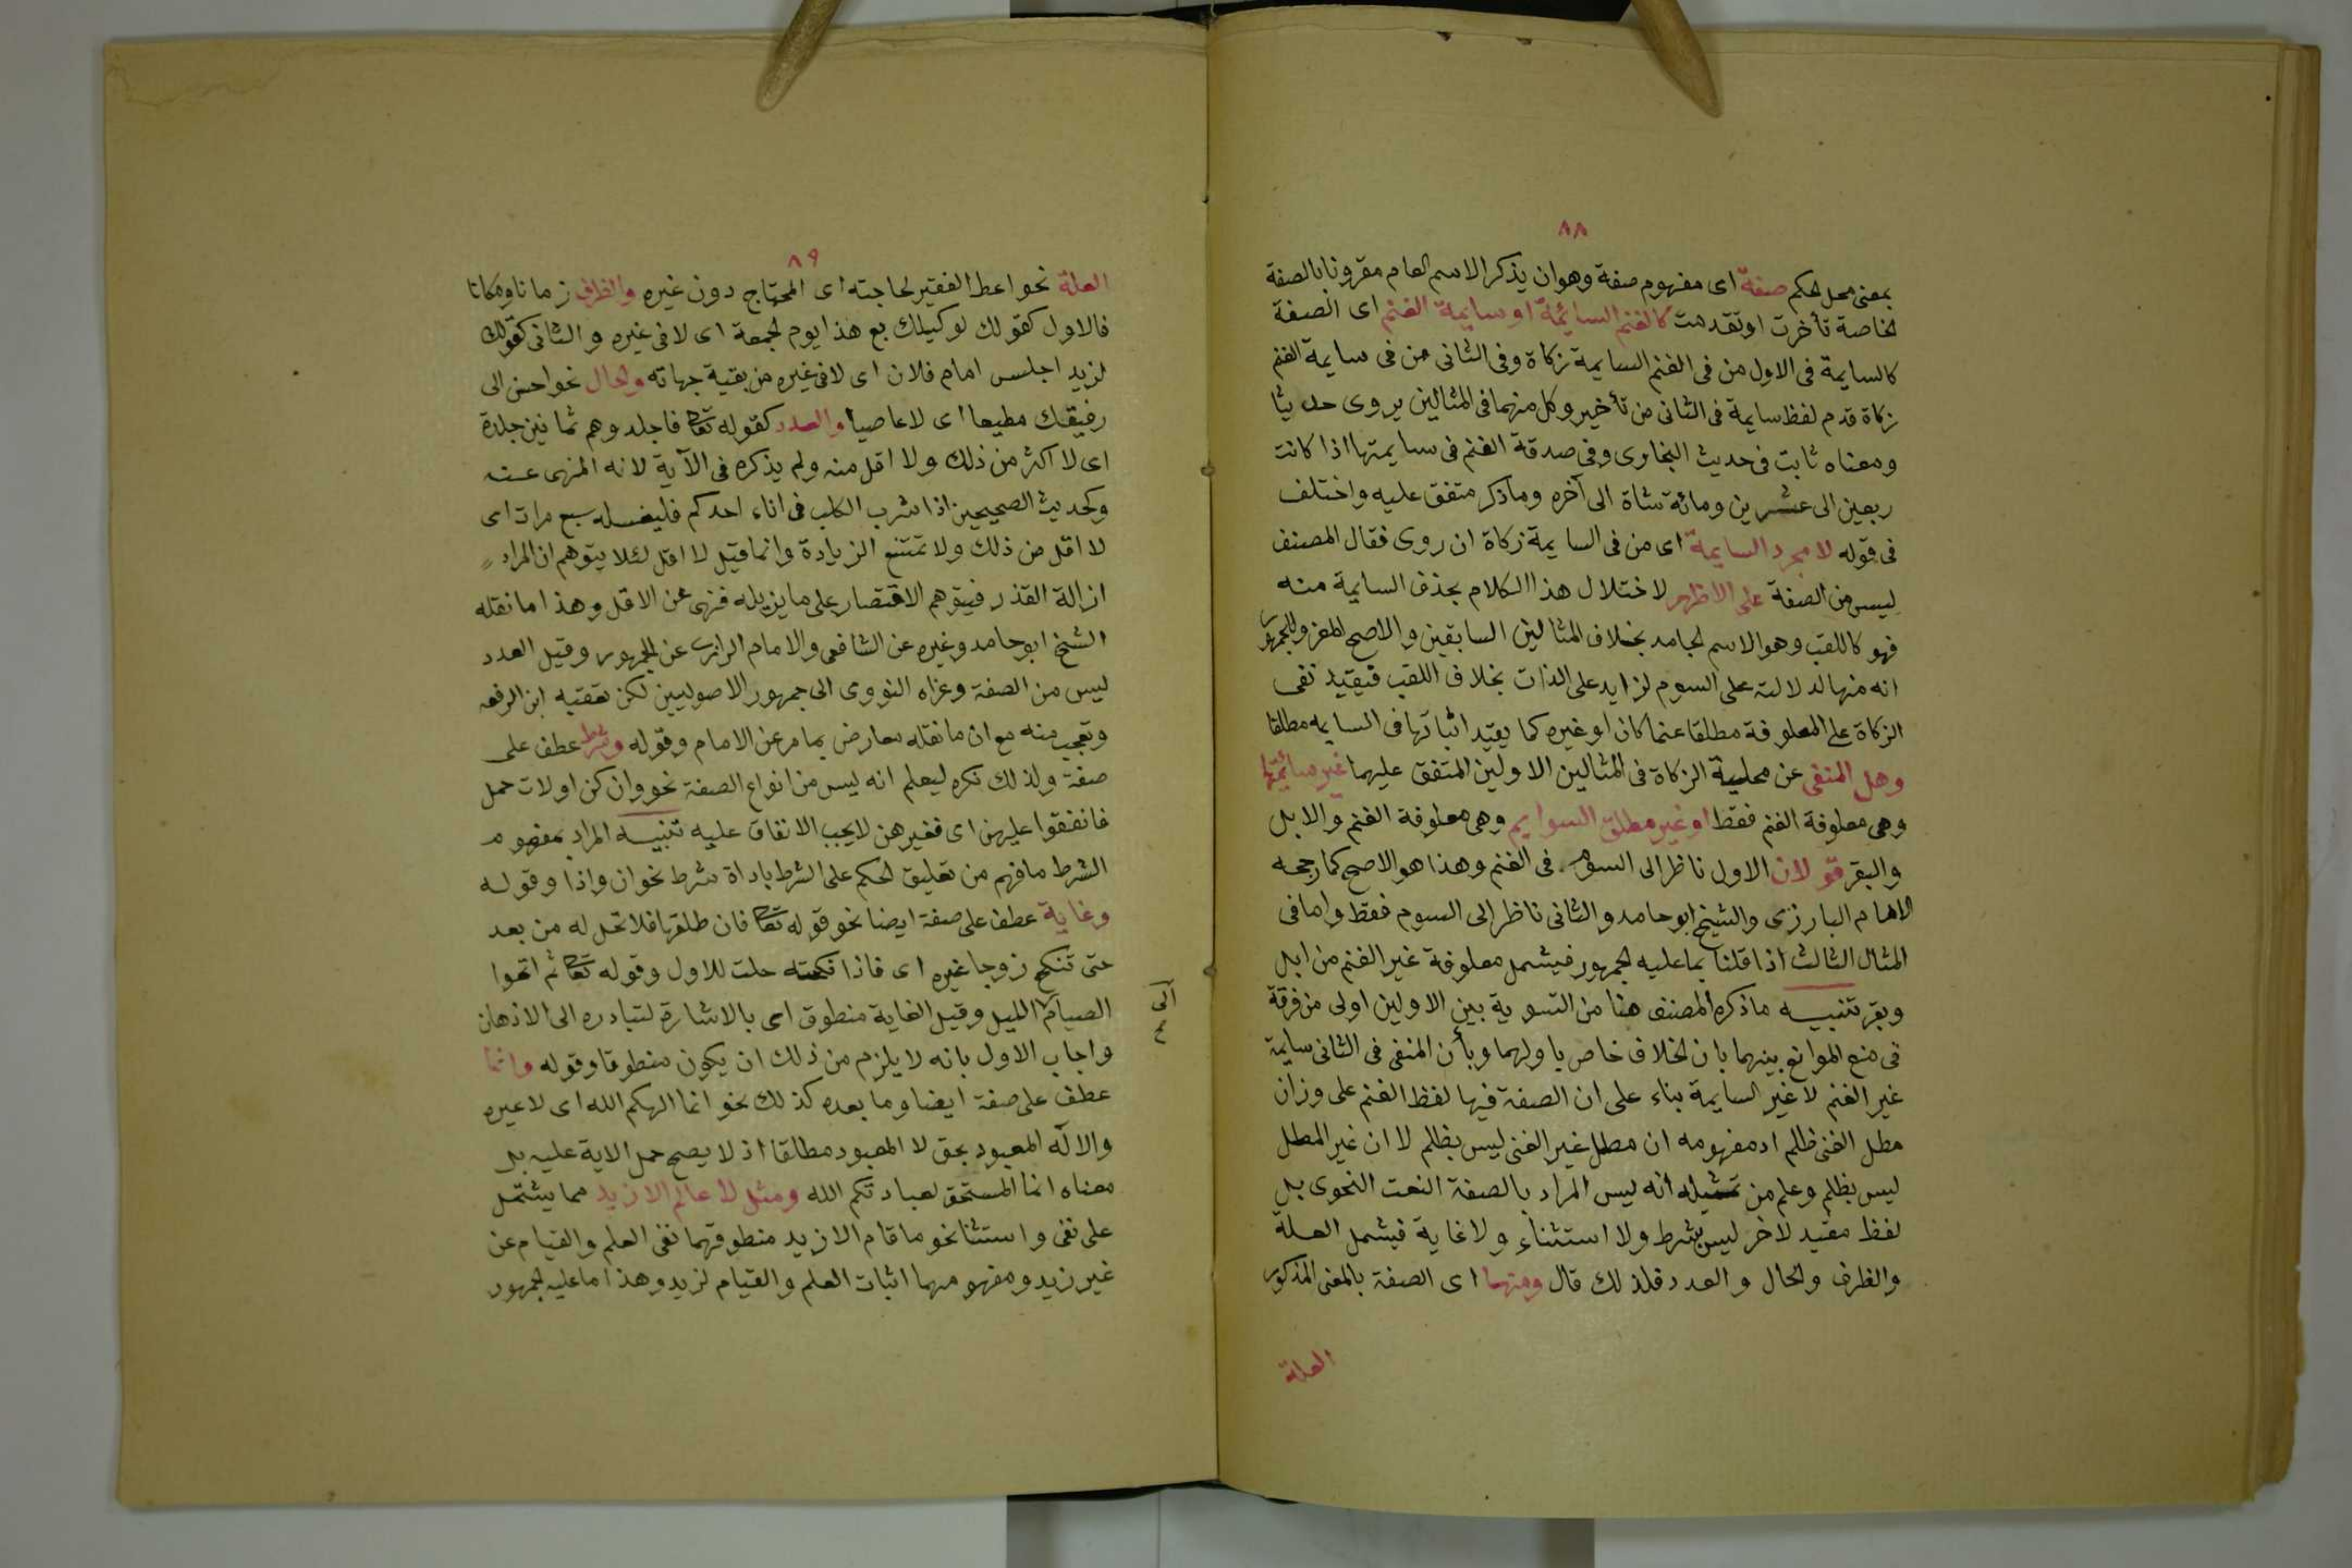 ٨٨
بمعنى محل الحكم صفة اى مفهوم صفة وهو ان يذكر الاسم العام مقرونا بالصفة
الخاصة تأخرت او تقدمت كالغنم السائمة او سايمة الغنم اى الصفة
كالسايمة فى الاول من فى الغنم السايمة زكاة وفى الثانى من فى سايمة الغنم
زكاة قدم لفظ سايمة فى الثانى من تأخير وكل منهما فى المثالين يروى حديثا
ومعناه ثابت فى حديث البخارى وفى صدقة الغنم فى سايمتها اذا كانت
ربعين الى عشرين ومائة شاة الى آخره وماذكر متفق عليه واختلف
فى قوله لا مجرد السايمة اى من فى السايمة زكاة ان روى فقال المصنف
ليس من الصفة على الاظهر لاختلال هذا الكلام بحذف السايمة منه
فهو كاللقب وهو الاسم الجامد بخلاف المثالين السابقين والاصح المعزو للجمهور
انه منها لدلالته على السوم لزايد على الذات بخلاف اللقب فيقيد نفى
الزكاة على المعلوفة مطلقا غنما كان او غيره كما يقيد اثباتها فى السايمه مطلقا
وهل المنفى عن محلية الزكاة فى المثالين الاولين المتفق عليهما غير سائمتها
وهى معلوفة الغنم فقط او غير مطلق السوايم وهى معلوفة الغنم والابل
والبقر قولان الاول ناظر الى السوم فى الغنم وهذا هو الاصح كما رجحه
الامام البارزى والشيخ ابو حامد والثانى ناظر الى السوم فقط واما فى
المثال الثالث اذا قلنا بما عليه الجمهور فيشمل معلوفة غير الغنم من ابل
وبقر تنبيه ماذكره المصنف هنا من التسوية بين الاولين اولى من فرقة
فى منع الموانع بينهما بان الخلاف خاص باولهما وبأن المنفى فى الثانى سايمة
غير الغنم لا غير السايمة بناء على ان الصفة فيها لفظ الغنم على وزان
مطل الغنى ظلم اد مفهومه ان مطل غير الغنى ليس بظلم لا ان غير المطل
ليس بظلم وعلم من تمثيله انه ليس المراد بالصفة النعت النحوى بل
لفظ مقيد لاخر ليس بشرط ولا استثناء ولا غاية فيشمل العلة
والظرف والحال والعدد فلذلك قال ومنها اى الصفة بالمعنى المذكور
العلة
٨٩
العلة نحو اعط الفقير لحاجته اى المحتاج دون غيره والظرف زمانا ومكانا
فالاول كقولك لوكيلك بع هذا يوم الجمعة اى لا فى غيره والثانى كقولك
لزيد اجلس امام فلان اى لا فى غيره من بقية جهاته والحال نحو احسن الى
رفيقك مطيعا اى لا عاصيا والعدد كقوله تعالى فاجلدوهم ثمانين جلدة
اى لا اكثر من ذلك ولا اقل منه ولم يذكره فى الآية لانه المنهى عنه
وكحديث الصحيحين اذا شرب الكلب فى اناء احدكم فليغسله سبع مرات اى
لا اقل من ذلك ولا تمتنع الزيادة وانما قيل لا اقل لئلا يتوهم ان المراد
ازالة القذر فيتوهم الاقتصار على ما يزيله فنهى عن الاقل وهذا ما نقله
الشيخ ابو حامد وغيره عن الشافعى والامام الرازى عن الجمهور وقيل العدد
ليس من الصفة وعزاه النووى الى جمهور الاصوليين لكن تعقبه ابن الرفعه
وتعجب منه مع ان ما نقله معارض بما مر عن الامام وقوله وشرط عطف على
صفة ولذلك نكره ليعلم انه ليس من انواع الصفة نحو وان كن اولات حمل
فانفقوا عليهن اى فغيرهن لا يجب الانفاق عليه تنبيه المراد بمفهوم
الشرط ما فهم من تعليق الحكم على الشرط باداة شرط نحو ان واذا وقوله
وغاية عطف على صفة ايضا نحو قوله تعالى فان طلقها فلا تحل له من بعد
حتى تنكح زوجا غيره اى فاذا نكحته حلت للاول وقوله تعالى ثم اتموا
الصيام الليل وقيل الغاية منطوق اى بالاشارة لتبادره الى الاذهان
الى
واجاب الاول بانه لا يلزم من ذلك ان يكون منطوقا وقوله وانما
عطف على صفة ايضا وما بعده كذلك نحو انما الهكم الله اى لا غيره
والاله المعبود بحق لا المعبود مطلقا اذ لا يصح حمل الاية عليه بل
معناه انما المستحق لعبادتكم الله ومثل لا عالم الا زيد مما يشتمل
على نفى واستثنا نحو ما قام الا زيد منطوقهما نفى العلم والقيام عن
غير زيد ومفهومهما اثبات العلم والقيام لزيد وهذا ما عليه الجمهور